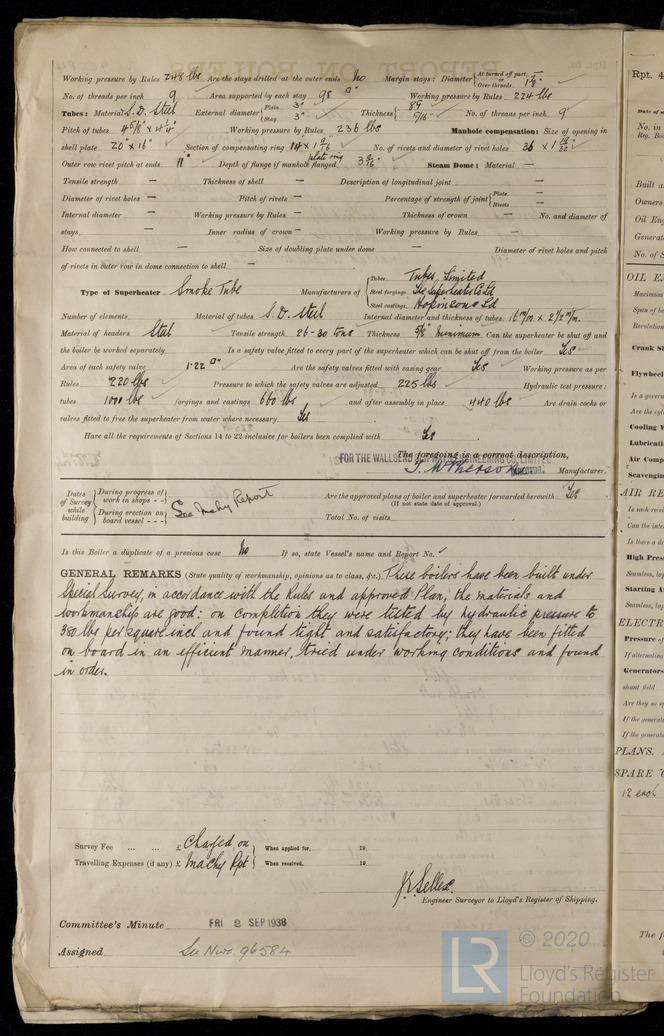 Working pressure by Rules 248 lbs Are the stays drilled at the outer ends No Margin stays: Diameter { At turned off part, or Over threads
No. of threads per inch 9 Area supported by each stay 98 □" Working pressure by Rules 224 lbs
Tubes: Material S.D. Steel External diameter { Plain 3" Stay 3" Thickness { 8G 5/16 No. of threads per inch 9
Pitch of tubes Working pressure by Rules 236 lbs Manhole compensation: Size of opening in
shell plate 20" x 16" Section of compensating ring No. of rivets and diameter of rivet holes 36 x
Outer row rivet pitch at ends 11" Depth of flange if manhole flanged Steam Dome: Material —
Tensile strength — Thickness of shell — Description of longitudinal joint —
Diameter of rivet holes — Pitch of rivets — Percentage of strength of joint { Plate — Rivets —
Internal diameter — Working pressure by Rules — Thickness of crown — No. and diameter of
stays — Inner radius of crown — Working pressure by Rules —
How connected to shell — Size of doubling plate under dome — Diameter of rivet holes and pitch
of rivets in outer row in dome connection to shell —
Type of Superheater Smoke Tube Manufacturers of { Tubes Tubes, Limited
Steel forgings The Superheater Co Ld
Steel castings Hopkinsons Ld
Number of elements Material of tubes S.D. Steel Internal diameter and thickness of tubes 16 m/m x 2½ m/m
Material of headers Steel Tensile strength 26-30 tons Thickness 5/8" minimum Can the superheater be shut off and
the boiler be worked separately Is a safety valve fitted to every part of the superheater which can be shut off from the boiler Yes
Area of each safety valve 1.22 □" Are the safety valves fitted with easing gear Yes Working pressure as per
Rules 220 lbs Pressure to which the safety valves are adjusted 225 lbs Hydraulic test pressure:
tubes 1000 lbs forgings and castings 660 lbs and after assembly in place 440 lbs Are drain cocks or
valves fitted to free the superheater from water where necessary Yes
Have all the requirements of Sections 14 to 22 inclusive for boilers been complied with Yes
The foregoing is a correct description,
FOR THE WALLSEND SLIPWAY & ENGINEERING CO. LIMITED.
DIRECTOR. Manufacturer.
Dates of Survey while building { During progress of work in shops - - During erection on board vessel - - - } See Machy Report Are the approved plans of boiler and superheater forwarded herewith Yes
(If not state date of approval.)
Total No. of visits
Is this Boiler a duplicate of a previous case No If so, state Vessel's name and Report No.
GENERAL REMARKS (State quality of workmanship, opinions as to class, &c.) These boilers have been built under
Special Survey, in accordance with the Rules and approved Plan; the materials and
workmanship are good: on completion they were tested by hydraulic pressure to
380 lbs per square inch and found tight and satisfactory; they have been fitted
on board in an efficient manner, tried under working conditions and found
in order.
Survey Fee ... ... £ Charged on When applied for, 19
Travelling Expenses (if any) £ Machy Rpt When received, 19
Engineer Surveyor to Lloyd's Register of Shipping.
Committee's Minute FRI 2 SEP 1938
Assigned See Nwc. 96584
Rpt. 4
Date of
No. in
Reg. Book
Built a
Owners
Oil En
Generat
No. of S
OIL E
Maximum
Span of be
Revolution
Crank Sh
Flywheel
Is a gover
Are the cyl
Cooling W
Lubricati
Air Comp
Scavengin
AIR RE
Is each recei
Can the inte
Is there a d
High Pres
Seamless, lap
Starting A
Seamless, lap
ELECTR
Pressure of
If alternating
Generators
shunt field
Are they so sp
If the generat
If the generato
PLANS.
SPARE
12 each
The f
LR © 2020
Lloyd's Register
Foundation